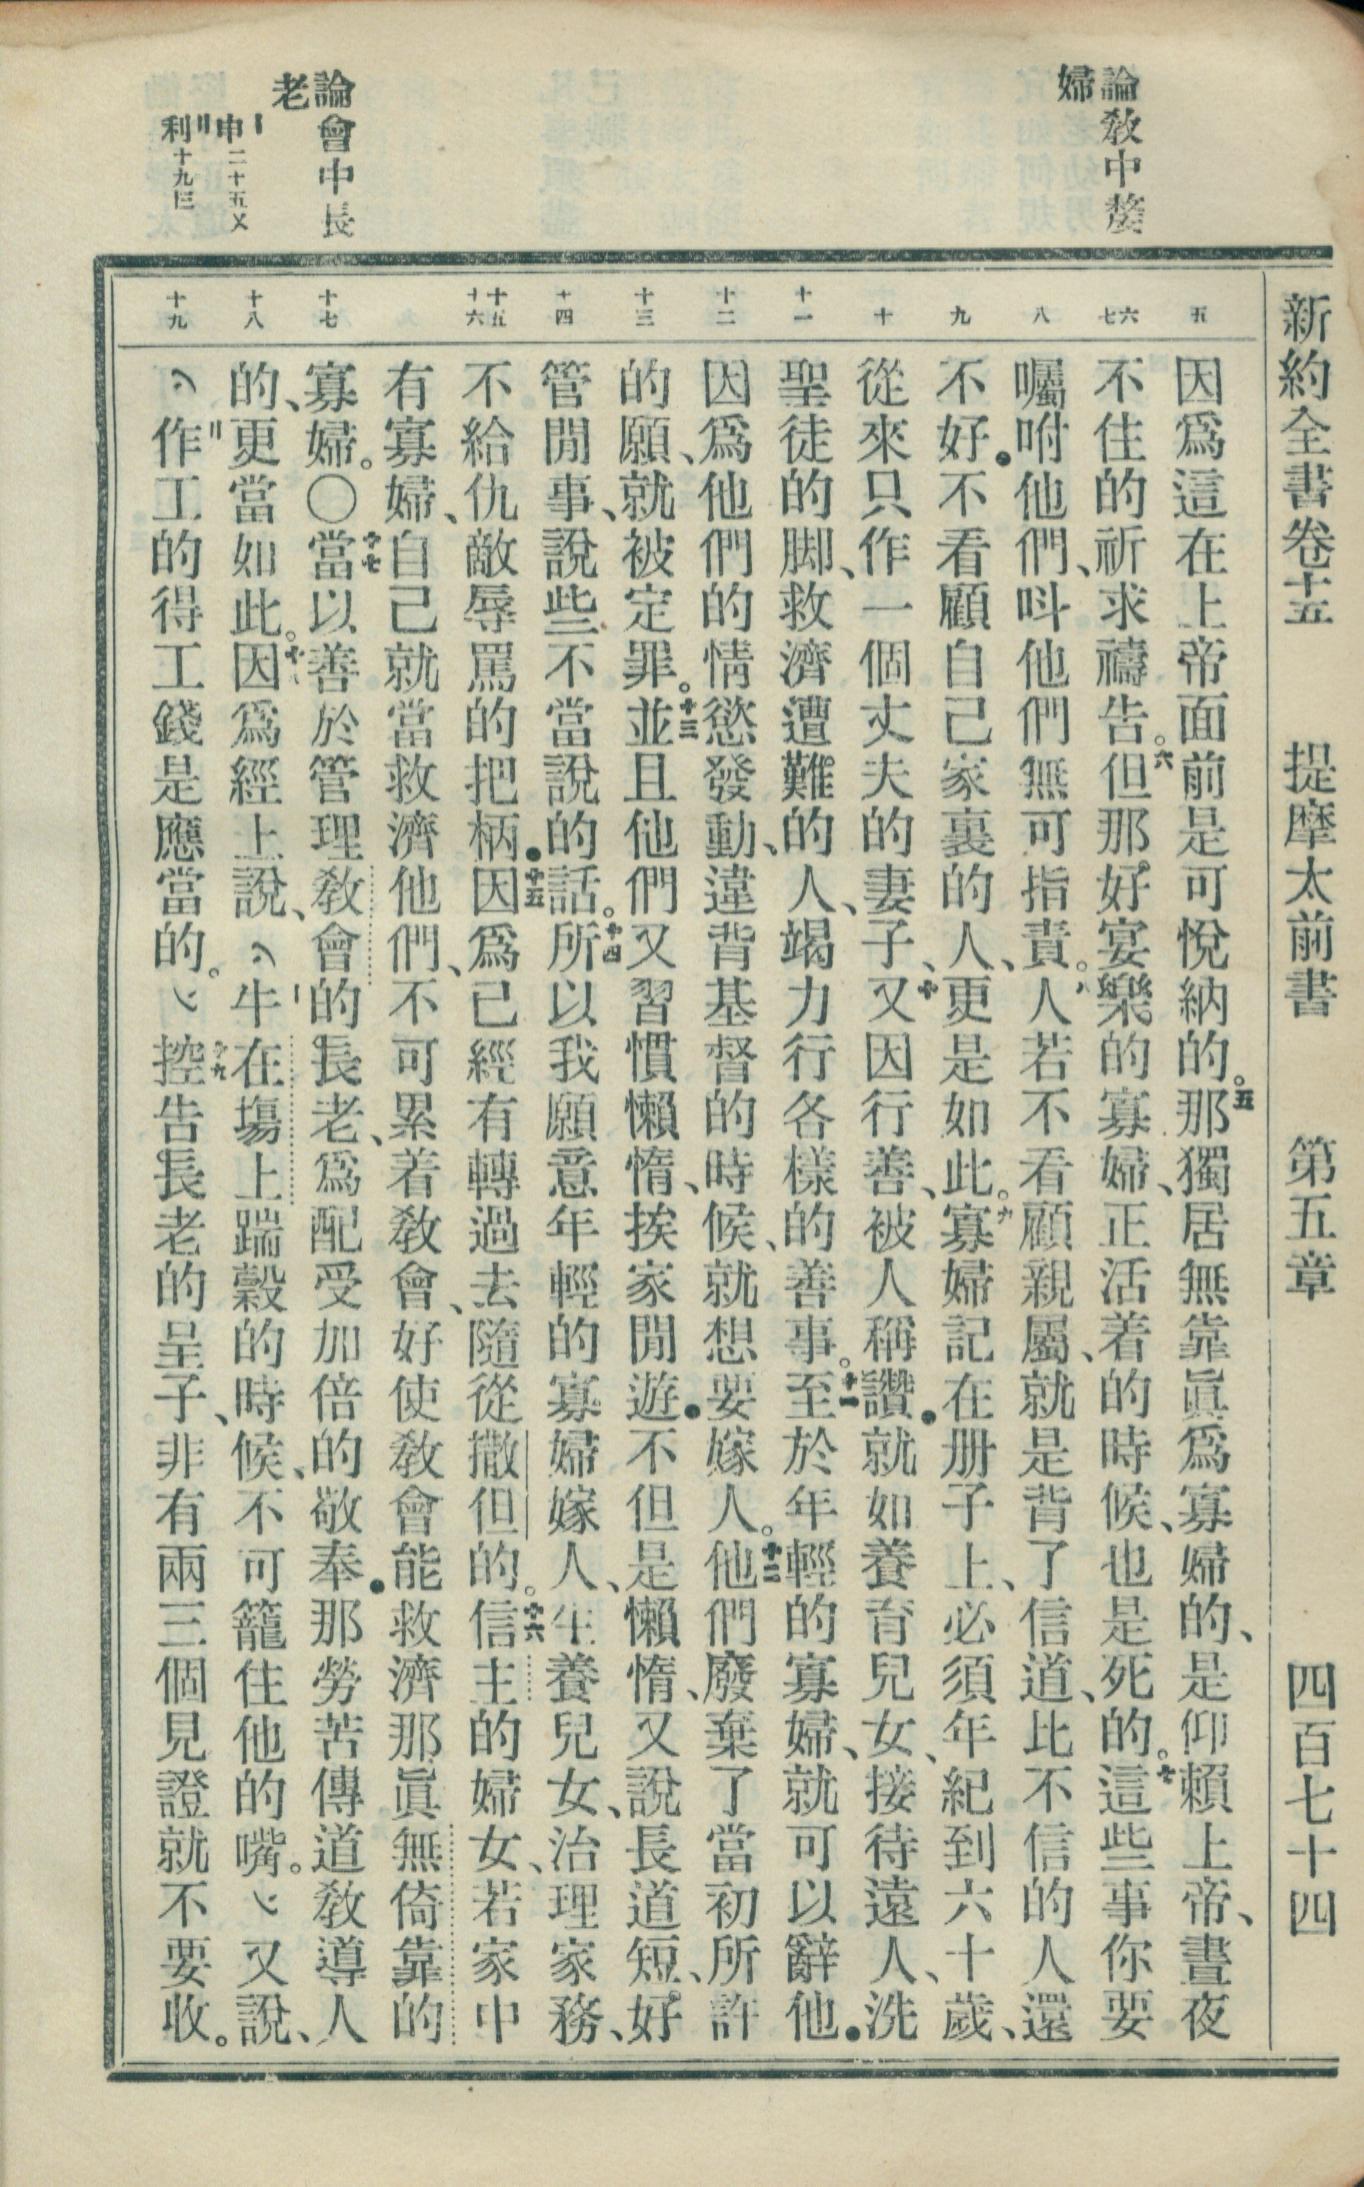 新約全書卷十五　提摩太前書　第五章　四百七十四
論教中嫠
婦
論會中長
老
申二十五乂
利十九〇
五
六
七
八
九
十
十一
十二
十三
十四
十五
十六
十七
十八
十九
因爲這在上帝面前是可悅納的。五那獨居無靠眞爲寡婦的、是仰賴上帝、晝夜
不住的祈求禱告。六但那好宴樂的寡婦、正活着的時候、也是死的。七這些事你要
囑咐他們、呌他們無可指責。八人若不看顧親屬、就是背了信道、比不信的人還
不好●不看顧自己家裏的人、更是如此。九寡婦記在册子上、必須年紀到六十歲、
從來只作一個丈夫的妻子、十又因行善、被人稱讚●就如養育兒女、接待遠人、洗
聖徒的脚、救濟遭難的人、竭力行各樣的善事。十一至於年輕的寡婦、就可以辭他●
因爲他們的情慾發動、違背基督的時候、就想要嫁人。十二他們廢棄了當初所許
的願、就被定罪。十三並且他們又習慣懶惰、挨家閒遊●不但是懶惰、又說長道短、好
管閒事、說些不當說的話。十四所以我願意年輕的寡婦嫁人、生養兒女、治理家務、
不給仇敵辱罵的把柄●十五因爲已經有轉過去隨從撒但的。十六信主的婦女、若家中
有寡婦、自己就當救濟他們、不可累着教會、好使教會能救濟那眞無倚靠的
寡婦。〇十七當以善於管理教會的長老、爲配受加倍的敬奉●那勞苦傳道教導人
的、更當如此。十八因爲經上說、牛在場上踹穀的時候、不可籠住他的嘴。又說、
作工的得工錢是應當的。十九控告長老的呈子、非有兩三個見證就不要收。